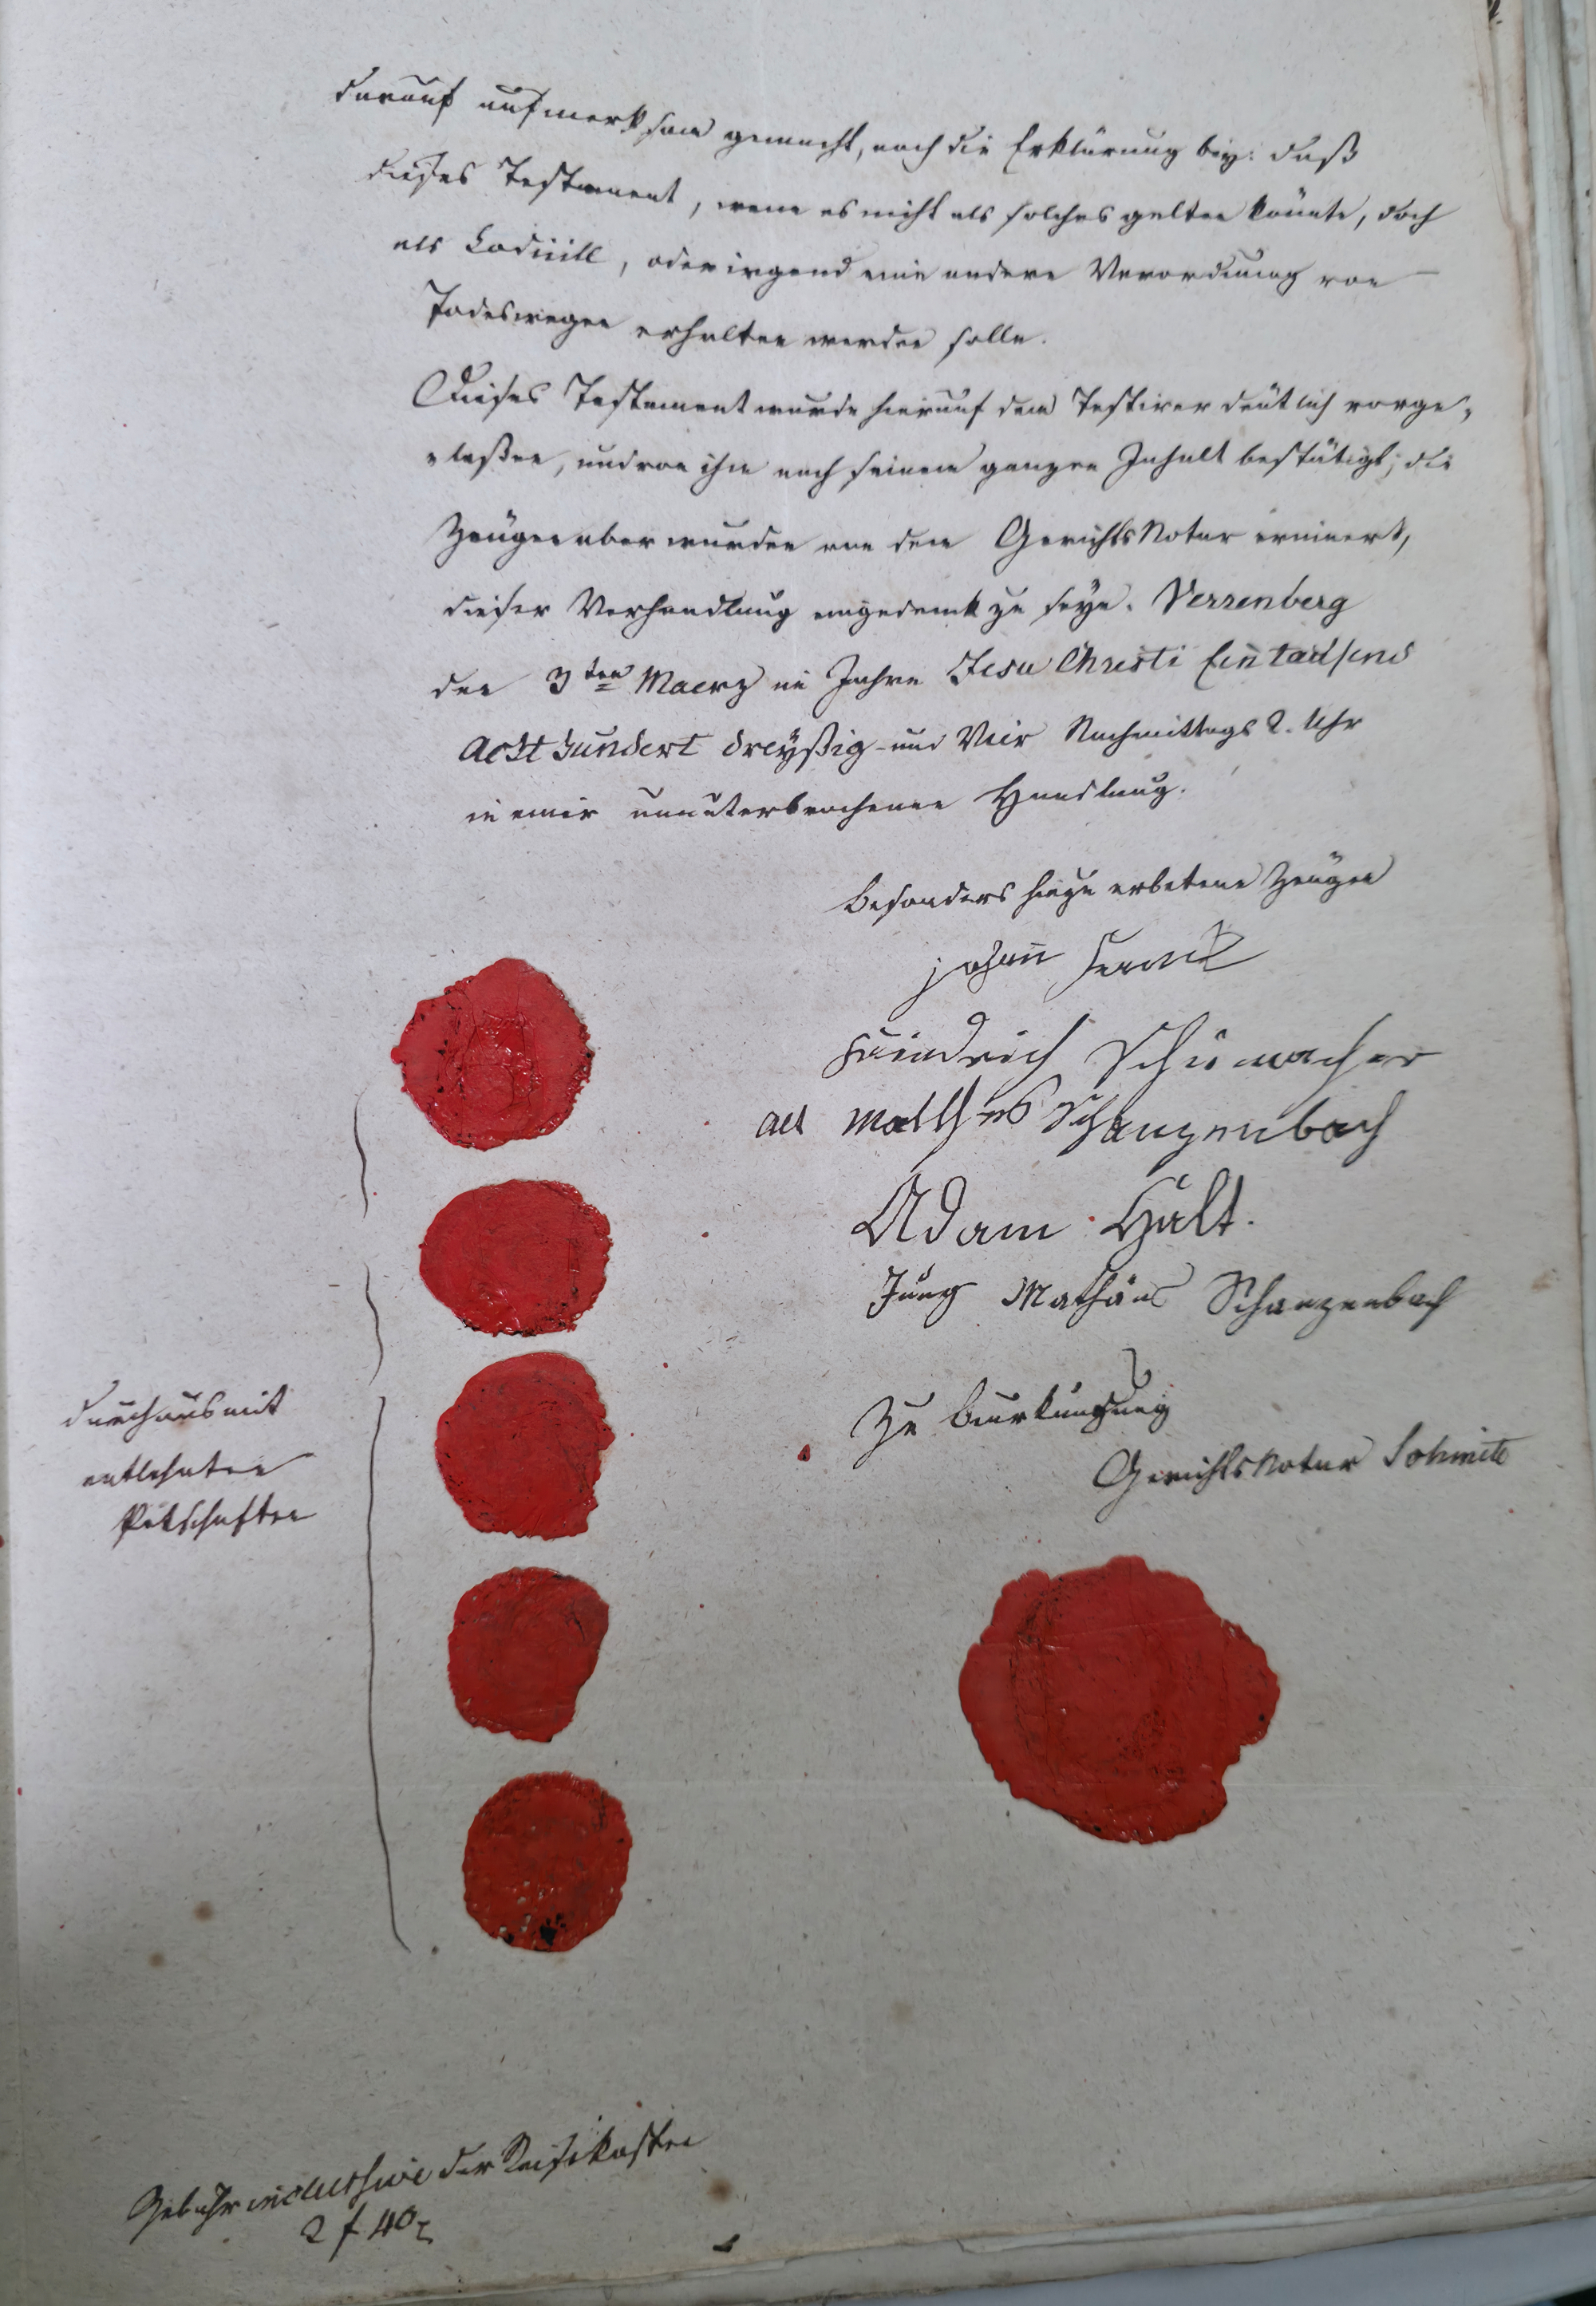 darauf aufmerksam gemacht, noch die Erklärung bey: daß
dieses Testament, wenn es nicht als solches gelten könnte, doch
als Codicill, oder irgend eine andere Verordnung von
Todeswegen erhalten werden solle.
Dieses Testament wurde hierauf dem Testirer deutlich vorge„
„leßen, und von ihm nach seinem ganzen Inhalt bestätigt; die
Zeugen aber wurden von dem GerichtsNotar erinnert,
dieser Verhandlung eingedenk zu seyn. Verrenberg
den 3ten Maerz im Jahre Jesu Christi Eintausend
Achthundert dreyßig und Vier Nachmittags 2. Uhr
in einer ununterbrochenen Handlung.
Besonders hiezu erbetene Zeugen
johann
Friedrich Schumacher
alt Matthes Schanzenbach
Adam Hält.
Jung Mathäus Schanzenbach
Zu Beurkundung
GerichtsNotar
durchaus mit
entlehnten
Petschaften
Gebühr inclussive der Reisekosten
2 f 40